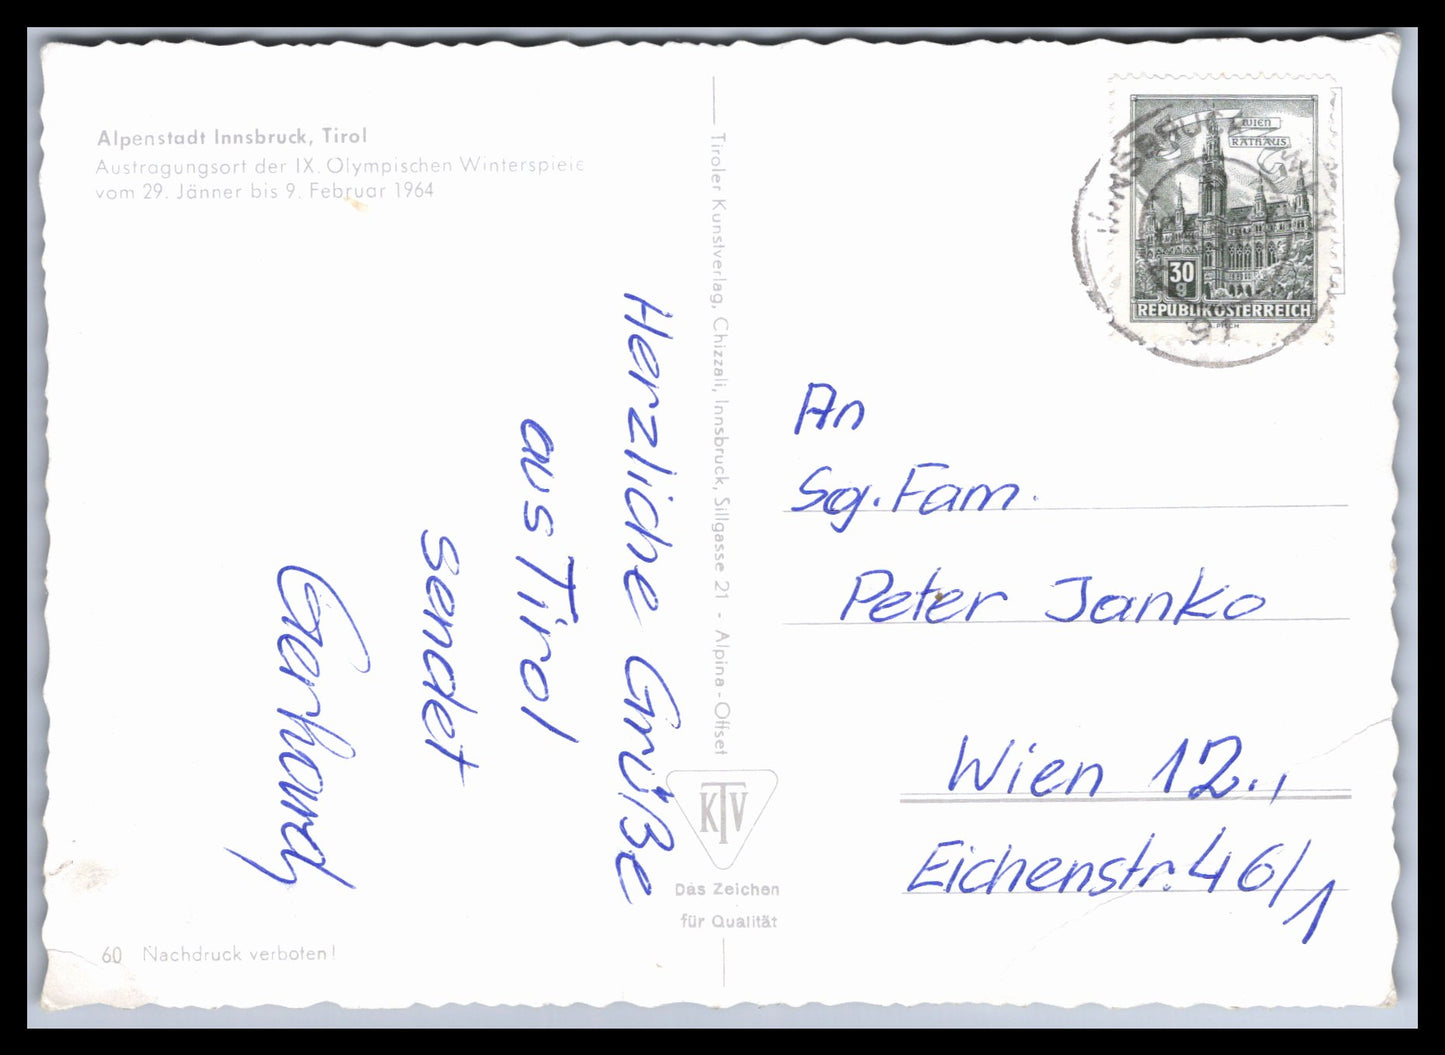 Alpenstadt Innsbruck, Tirol
Austragungsort der IX. Olympischen Winterspiele
vom 29. Jänner bis 9. Februar 1964
Herzliche Grüße
aus Tirol
sendet
Gerhard
60 Nachdruck verboten!
Tiroler Kunstverlag, Chizzali, Innsbruck, Sillgasse 21 - Alpina-Offset
KTV
Das Zeichen
für Qualität
WIEN
RATHAUS
30
g
REPUBLIK ÖSTERREICH
A. PISCH
INNSBRUCK
An
Sg. Fam.
Peter Janko
Wien 12.,
Eichenstr. 46/1